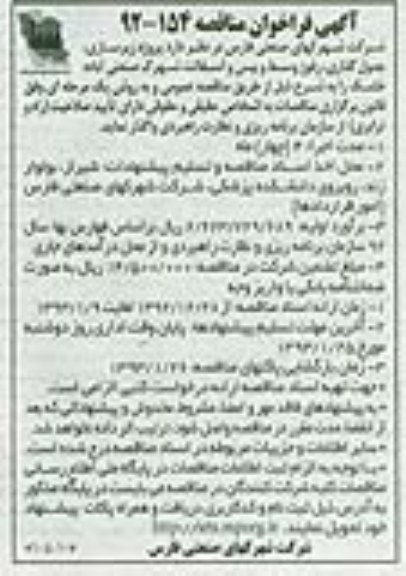 آگهی فراخوان مناقصه ۱۵۴-۹۲
شرکت شهرکهای صنعتی فارس در نظر دارد پروژه زیرسازی،
جدول گذاری، رفوژ وسط و پیس و آسفالت شهرک صنعتی آباده
طشک را به شرح ذیل از طریق مناقصه عمومی و به روش یک مرحله ای وفق
قانون برگزاری مناقصات به اشخاص حقیقی و حقوقی دارای تأیید صلاحیت
از سازمان برنامه ریزی و نظارت راهبردی واگذار نماید.
۱- مدت اجرا: ۴ (چهار) ماه
۲- محل اخذ اسناد مناقصه و تسلیم پیشنهادات: شیراز، بولوار
زند، روبروی دانشکده پزشکی، شرکت شهرکهای صنعتی فارس
(امور قراردادها)
۳- برآورد اولیه: ریال بر اساس فهارس بها سال
۹۲ سازمان برنامه ریزی و نظارت راهبردی و از محل درآمدهای جاری
۴- مبلغ تضمین شرکت در مناقصه: ریال به صورت
ضمانتنامه بانکی یا واریز وجه
۱- زمان ارائه اسناد مناقصه: از ۱۳۹۲/۱۲/۲۸ لغایت ۱۳۹۳/۱/۹
۲- آخرین مهلت تسلیم پیشنهادها: پایان وقت اداری روز دوشنبه
مورخ ۱۳۹۳/۱/۲۵
۳- زمان بازگشایی پاکتهای مناقصه: ۱۳۹۳/۱/۲۶
* جهت تهیه اسناد مناقصه ارائه درخواست کتبی الزامی است.
* به پیشنهادهای فاقد مهر و امضا، مشروط، مخدوش و پیشنهاداتی که بعد
از انقضا مدت مقرر در مناقصه واصل شود، ترتیب اثر داده نخواهد شد.
* سایر اطلاعات و جزییات مربوطه در اسناد مناقصه درج شده است.
* با توجه به الزام ثبت اطلاعات مناقصات در پایگاه ملی اطلاع رسانی
مناقصات کلیه شرکت کنندگان در مناقصه می بایست در پایگاه مذکور
به آدرس ذیل ثبت نام و کد کاربری دریافت و همراه پاکات پیشنهاد
خود تحویل نمایند.
شرکت شهرکهای صنعتی فارس